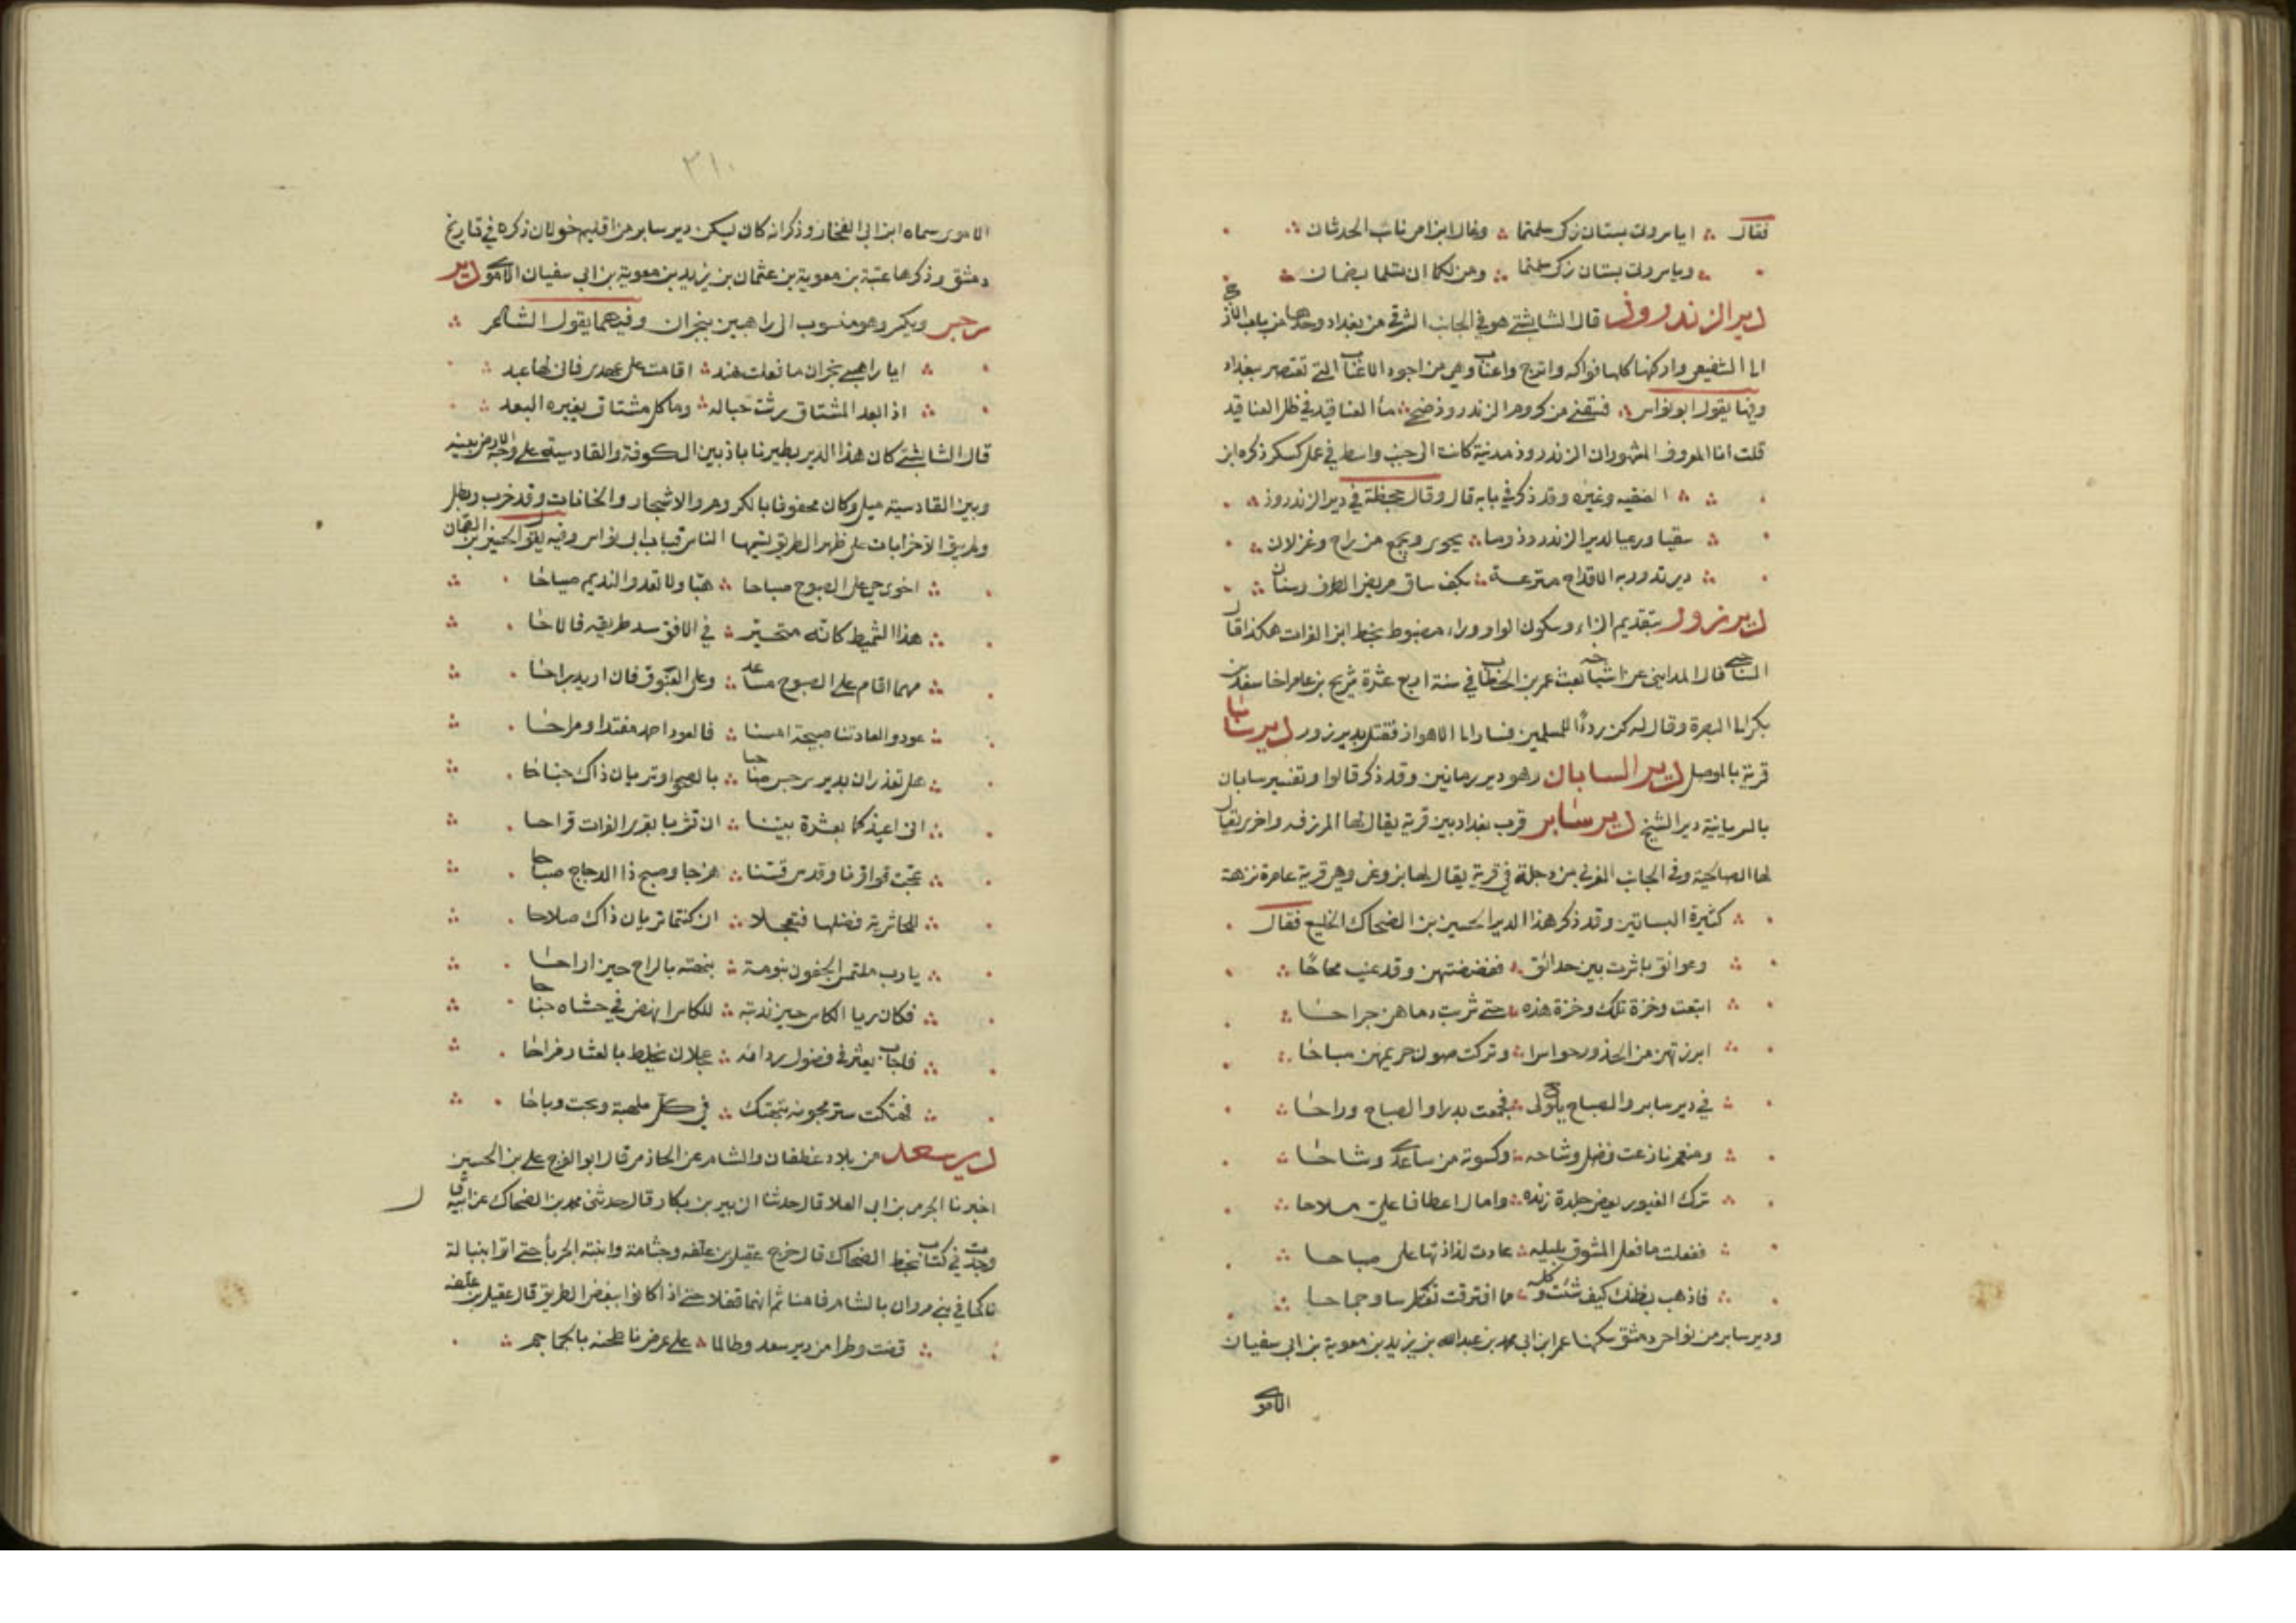 فقال ؞ ايا سروات بستان زكى سلمتما ؞ وغال ابن امى نائب الحدثان ؞
؞ ويا سروات بستان زكى سلمتما ؞ ومن لكما ان تسلما بضمان ؞
دير الزندرود قال الشابشتي هو في الجانب الشرقي من بغداد وحدها من باب الازج
الى السفيعي وارضها كلها فواكه واترج واعناب وهي من اجود الاعناب التي تعتصر ببغداد
وفيها يقول ابو نواس ؞ فسقني من كروم الزندرود ضحى ؞ ماء العناقيد في ظل العناقيد
قلت انا المعروف المشهور ان الزندرود مدينة كانت الى جنب واسط في عمل كسكر ذكره ابن
؞ ؞ الفقيه وغيره وقد ذكر في بابه قال وقال جحظة في دير الزندرود ؞
؞ سقيا ورعيا لدير الزندرود وما ؞ يحوى ويجمع من راح وغزلان ؞
؞ دير تدور به الاقداح مترعة ؞ بكف ساق مريض الطرف وسنان ؞
دير زور بتقديم الزاء وسكون الواو وراء مضبوط بخط ابن الفرات هكذا قال
الساجي قال المدايني عن اشياخه بعث عمر بن الخطاب في سنة اربع عشرة شريح بن عامر اخا سعد بن
بكر الى البصرة وقال له كن ردءا للمسلمين فسار الى الاهواز فقتل بدير زور دير سابا
قرية بالموصل دير السابان وهو دير رمانين وقد ذكر قالوا وتفسير سابان
بالسريانية دير الشيخ دير سابر قرب بغداد بين قرية يقال لها المزرفه واخرى يقال
لها الصالحية وفي الجانب الغربي من دجلة في قرية يقال لها بزوغى وهي قرية عامرة نزهة
؞ كثيرة البساتين وقد ذكر هذا الدير الحسين بن الضحاك الخليع فقال
؞ وعواتق باشرت بين حدائق ؞ ففضضتهن وقد عنين صحاحا ؞
؞ اتبعت وخزة تلك وخزة هذه ؞ حتى شربت دماهن جراحا ؞
؞ ابرزتهن من الخدور حواسرا ؞ وتركت صون حريمهن مباحا ؞
؞ في دير سابر والصباح يلوح لي ؞ فجمعت بدرا والصباح وراحا ؞
؞ ومنعم نازعت فضل وشاحه ؞ وكسوته من ساعدي وشاحا ؞
؞ ترك الغيور يعض جلدة زنده ؞ وامال اعطافا علي ملاحا ؞
؞ ففعلت ما فعل المشوق بليله ؞ عادت لذاذتها على صباحا ؞
؞ فاذهب بظنك كيف شئت وكله ؞ مما اقترفت تغطرسا وجماحا ؞
ودير سابر من نواحي دمشق سكنها عمر ابن ابي محمد بن عبد الله بن يزيد بن معوية بن ابي سفيان
الاموي
٣١٠
الاموى سماه ابن ابي الفخار وذكر انه كان يسكن دير سابر من اقليم خولان ذكره في تاريخ
دمشق وذكرها عتبة بن معوية بن عثمان بن يزيد بن معوية بن ابي سفيان الاموي دير
سرجس وبكس وهو منسوب الى راهبين بنجران وفيهما يقول الشاعر ؞
؞ ايا راهبي نجران ما فعلت هند ؞ اقامت على عهدى فانى لها عبد ؞
؞ اذا بعد المشتاق رثت حباله ؞ وما كل مشتاق يغيره البعد ؞
قال الشابشتي كان هذا الدير بطيرناباذ بين الكوفة والقادسية على وجه الارض بينه
وبين القادسية ميل وكان محفوفا بالكروم والاشجار والخانات وقد خرب وبطل
ولم يبق الا خرابات على ظهر الطريق يسميها الناس قباب ابي نواس وفيه يقول الحسين بن الضحاك
؞ اخوى حي على الصبوح صباحا ؞ هبا ولا تعدوا النديم صباحا ؞
؞ هذا الشميط كانه متحير ؞ في الافق سد طريقه فالاحا ؞
؞ مهما اقام على الصبوح مساعد ؞ وعلى الغبوق فلن اريد براحا ؞
؞ عودوا لعادتنا صبيحة امسنا ؞ فالعود احمد مغتدا ومراحا ؞
؞ هل تعذران بدير سرجس صاحبا ؞ بالصحو او تريان ذاك جناحا ؞
؞ اني اعيذكما بعشرة بيننا ؞ ان تشربا بقرى الفرات قراحا ؞
؞ عجت قواقزنا وقدس قسنا ؞ هزجا وصبح ذا الدجاج صباحا ؞
؞ للجاشرية فضلها فتعجلا ؞ ان كنتما تريان ذاك صلاحا ؞
؞ يا رب ملتمس الجفون بنومة ؞ نبهته بالراح حين اراحا ؞
؞ فكان ريا الكاس حين ندبته ؞ للكاس انهض في حشاه جناحا ؞
؞ فاجاب يعثر في فضول ردائه ؞ عجلان يخلط بالعثار مراحا ؞
؞ فهتكت ستر مجونه بتهتك ؞ في كل ملهية وبحت وباحا ؞
دير سعد بين بلاد غطفان والشام عن الحازمي قال ابو الفرج علي بن الحسين
اخبرنا الحرمى بن ابي العلا قال حدثنا الزبير بن بكار قال حدثني محمد بن الضحاك عن ابيه قال
وجدت في كتاب بخط الضحاك قال خرج عقيل بن علفه وجثامة وابنته الجرباء حتى اتوا بنتا له
ناكحا في بني مروان بالشام فامنا ثم انهما قفلا حتى اذا كانوا ببعض الطريق قال عقيل بن علفه
؞ قضت وطرا من دير سعد وطالما ؞ على عرض ناطحنه بالجماجم ؞